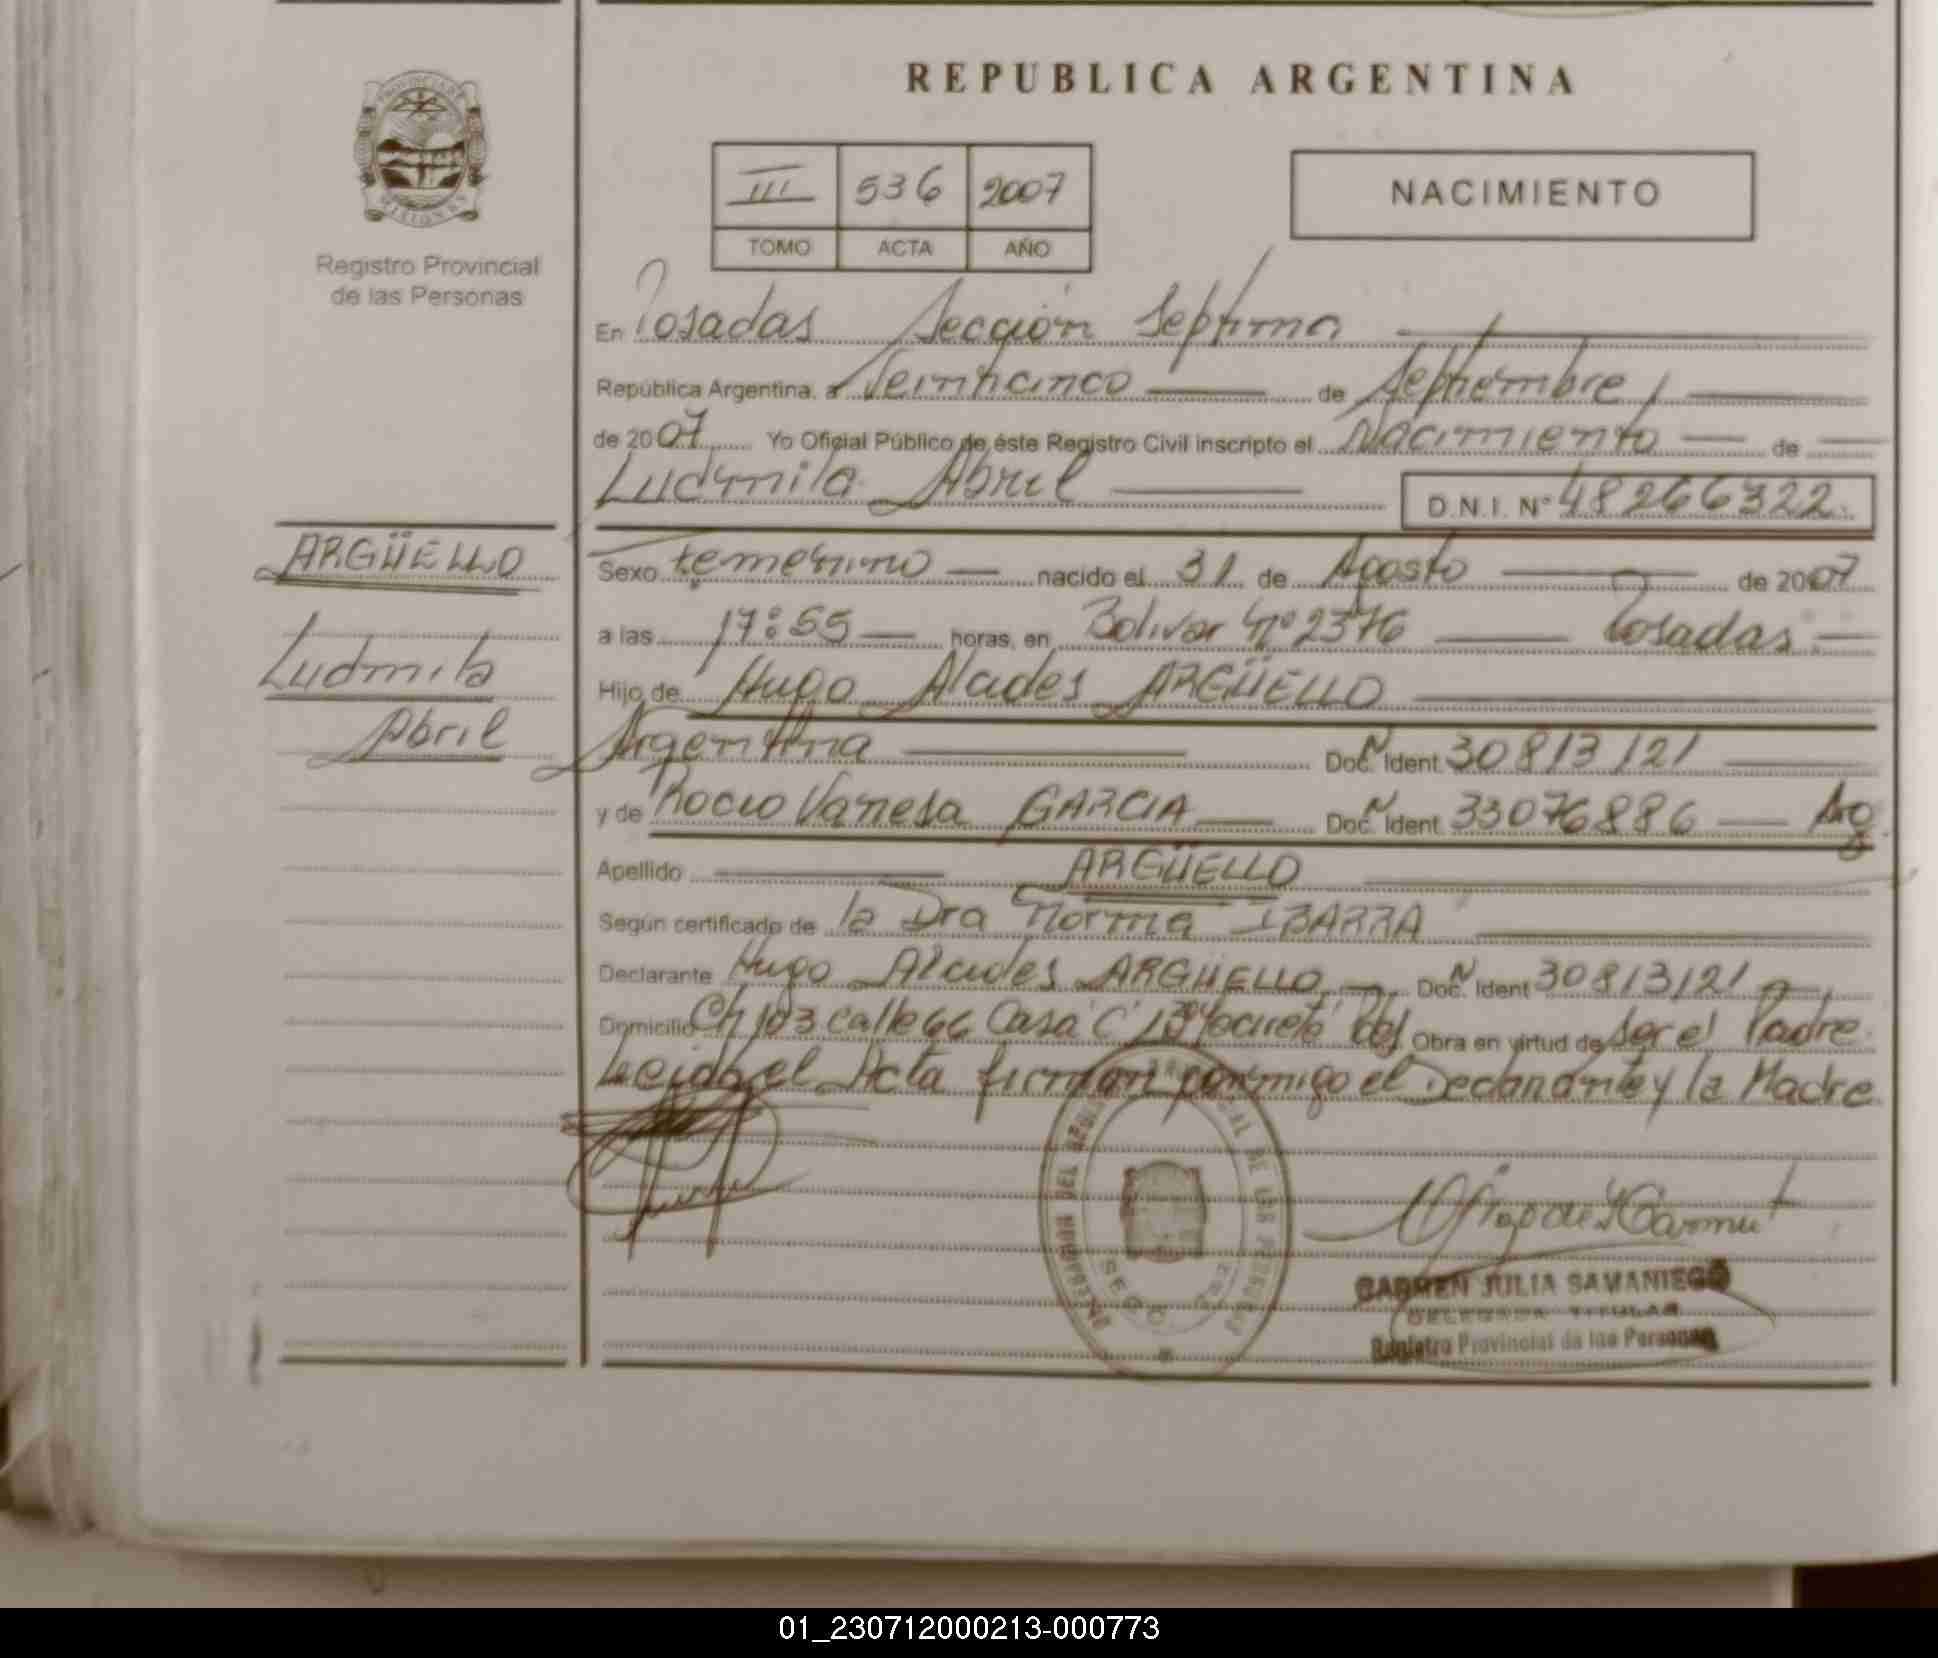 REPUBLICA ARGENTINA
PROVINCIA DE
MISIONES
Registro Provincial
de las Personas
III 536 2007
TOMO ACTA AÑO
NACIMIENTO
En Posadas Sección Septima
República Argentina, a Veinticinco de Septiembre
de 2007 Yo Oficial Público de éste Registro Civil inscripto el Nacimiento de
Ludmila Abril D.N.I. Nº 48266322.
ARGÜELLO
Ludmila
Abril
Sexo femenino nacido el 31 de Agosto de 2007
a las 17:55 horas, en Bolivar Nº 2376 Posadas.
Hijo de Hugo Alcides ARGÜELLO
Argentina Doc. N Ident. 30813121
y de Rocio Vanesa GARCIA Doc. N Ident. 33076886 Arg.
Apellido ARGÜELLO
Según certificado de la Dra Norma IBARRA
Declarante Hugo Alcides ARGÜELLO Doc. N Ident 30813121
Domicilio Ch 103 calle 66 Casa "C" Obra en virtud de ser el Padre.
Leida el Acta firman conmigo el Declarante y la Madre
CARMEN JULIA SAMANIEGO
DELEGADA TITULAR
Registro Provincial de las Personas
01_230712000213-000773